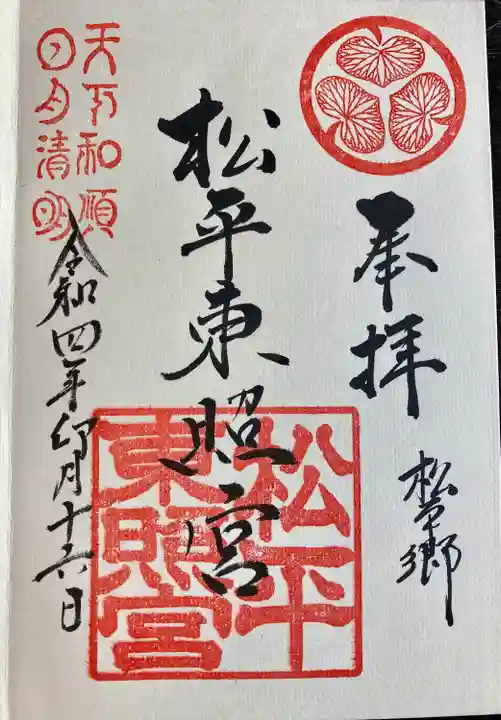 奉拝
松平郷
松平東照宮
松平
東照宮
天下和順
日月清明
令和四年卯月十六日